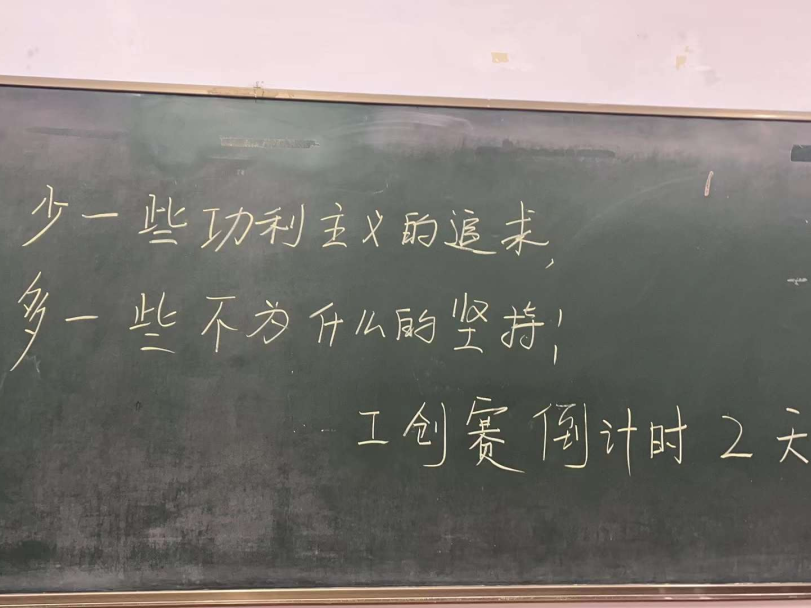 少一些功利主义的追求,
多一些不为什么的坚持;
工创赛倒计时2天